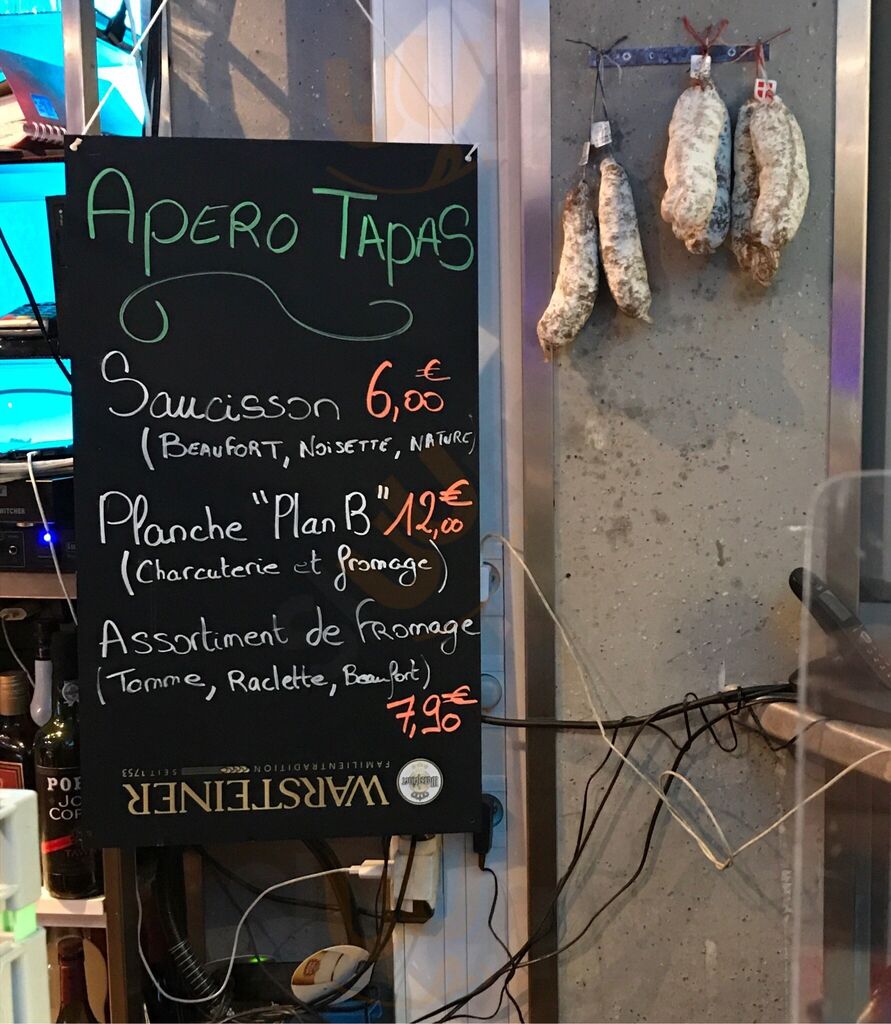 APERO TAPAS
Saucisson 6,00€
(BEAUFORT, NOISETTE, NATURE)
Planche "Plan B" 12,00€
(Charcuterie et fromage)
Assortiment de FROMAGE
(Tomme, Raclette, Beaufort)
7,90€
WARSTEINER
FAMILIENTRADITION SEIT 1753